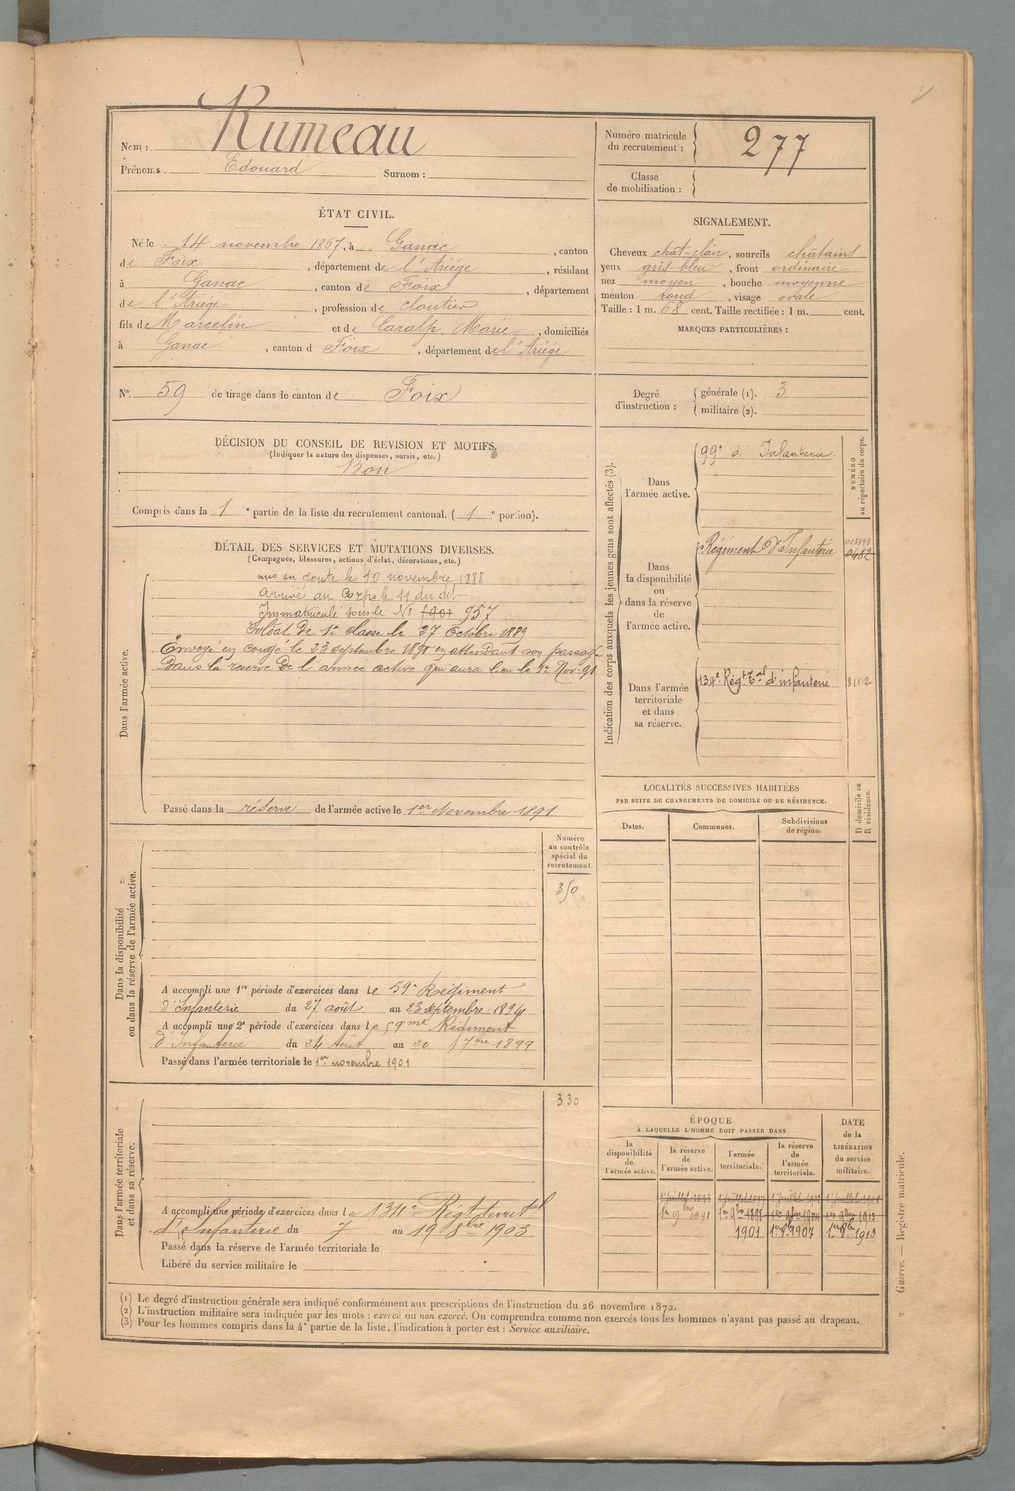 Nom : Rumeau
Prénoms. Edouard Surnom :
Numéro matricule du recrutement : 277
Classe de mobilisation :
ÉTAT CIVIL.
Né le 14 novembre 1867, à Ganac, canton
de Foix, département de l'Ariége, résidant
à Ganac, canton de Foix, département
de l'Ariége, profession de cloutier
fils de Marcelin et de Claralp Marie, domiciliés
à Ganac, canton d Foix, département de l'Ariége
SIGNALEMENT.
Cheveux chat-clair, sourcils châtains
yeux gris-bleu, front ordinaire
nez moyen, bouche moyenne
menton rond, visage ovale
Taille : 1 m. 68 cent. Taille rectifiée : 1 m. cent.
MARQUES PARTICULIÈRES :
N° 59 de tirage dans le canton de Foix
Degré d'instruction : générale (1). 3
militaire (2).
DÉCISION DU CONSEIL DE REVISION ET MOTIFS.
(Indiquer la nature des dispenses, sursis, etc.)
Bon
Compris dans la 1e partie de la liste du recrutement cantonal. (1e portion).
DÉTAIL DES SERVICES ET MUTATIONS DIVERSES.
(Campagnes, blessures, actions d'éclat, décorations, etc.)
Dans l'armée active.
mis en route le 10 novembre 1888
Arrivé au Corps le 11 du dit
Immatriculé sous le N° 957
Soldat de 1e classe le 27 Octobre 1889
Envoyé en congé le 23 septembre 1891 en attendant son passage
dans la réserve de l'armée active qui aura lieu le 1er Nov. 91
Passé dans la réserve de l'armée active le 1er Novembre 1891
Indication des corps auxquels les jeunes gens sont affectés (3).
NUMÉRO au répertoire du corps.
Dans l'armée active.
99e d'Infanterie.
Dans la disponibilité ou dans la réserve de l'armée active.
Régiment d'Infanterie
Dans l'armée territoriale et dans sa réserve.
134e Régt Tal d'infanterie
LOCALITÉS SUCCESSIVES HABITÉES
PAR SUITE DE CHANGEMENTS DE DOMICILE OU DE RÉSIDENCE.
Dates. Communes. Subdivisions de région.
D domicile ou R résidence.
Dans la disponibilité ou dans la réserve de l'armée active.
Numéro au contrôle spécial du recrutement.
350
A accompli une 1re période d'exercices dans le 59e Régiment
d'Infanterie du 27 août au 23 septembre 1894
A accompli une 2e période d'exercices dans le 59me Régiment
d'Infanterie du 24 Août au 20 7bre 1899
Passé dans l'armée territoriale le 1er novembre 1901
Dans l'armée territoriale et dans sa réserve.
330
A accompli une période d'exercices dans le 134e Régt territal
d'Infanterie du 7 au 19 8bre 1903
Passé dans la réserve de l'armée territoriale le
Libéré du service militaire le
ÉPOQUE
À LAQUELLE L'HOMME DOIT PASSER DANS
la disponibilité de l'armée active.
la réserve de l'armée active.
l'armée territoriale.
la réserve de l'armée territoriale.
DATE de la LIBÉRATION du service militaire.
1901
(1) Le degré d'instruction générale sera indiqué conformément aux prescriptions de l'instruction du 26 novembre 1872.
(2) L'instruction militaire sera indiquée par les mots : exercé ou non exercé. On comprendra comme non exercés tous les hommes n'ayant pas passé au drapeau.
(3) Pour les hommes compris dans la 4e partie de la liste, l'indication à porter est : Service auxiliaire.
Guerre. — Registre matricule.